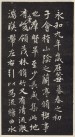 永和九年歲在癸丑暮春之初
會于會稽山陰之蘭亭脩禊事
也群賢畢至少長咸集此地有
崇山峻領茂林脩竹又有清流激
湍暎帶左右引以為流觴曲